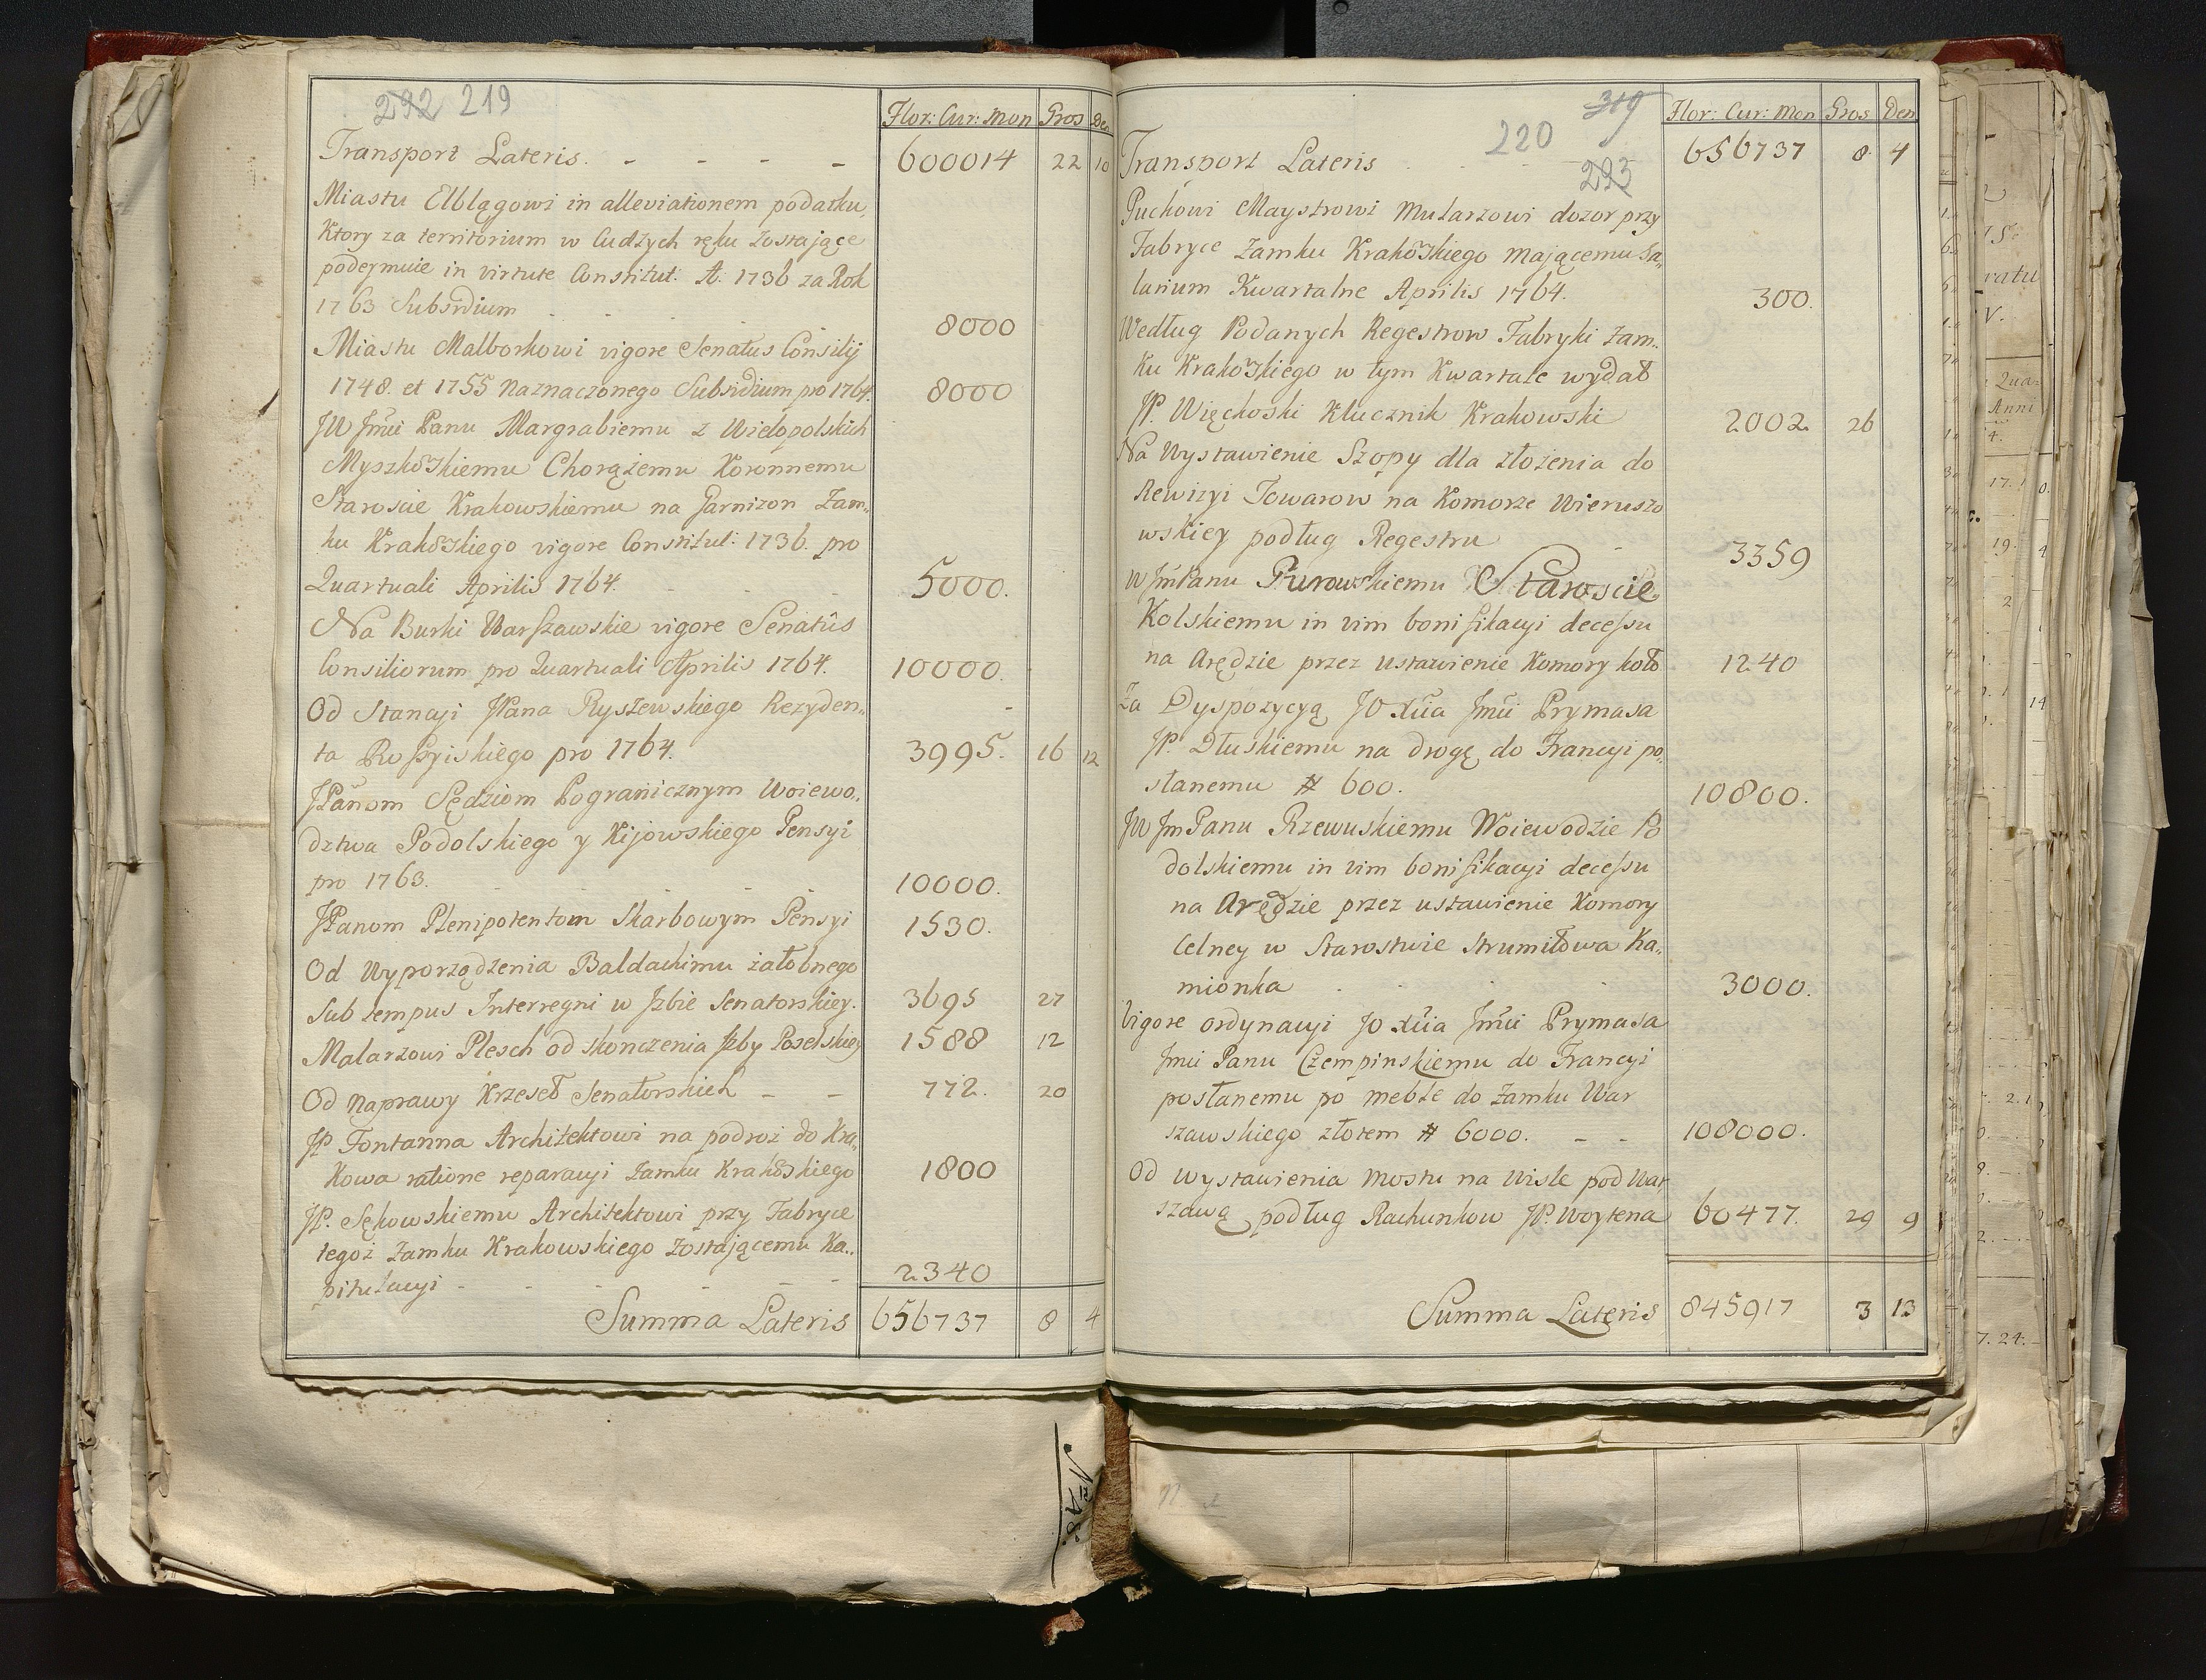 292 219
Flor: Cur: Mon Gros Den
Transport Lateris. - - - - 600014 22 10
Miastu Elblągowi in alleviationem podatku,
Ktory za territorium w Cudzych ręku zostaiące
podeymuie in virtute Constitut: A. 1736 za Rok
1763 Subsidium 8000
Miastu Malborkowi vigore Senatus Consilij
1748. et 1755 naznaczonego Subsidium pro 1764. 8000
JW Jmci Panu Margrabiemu z Wielopolskich
Myszkowskiemu Chorążemu Koronnemu
Staroscie Krakowskiemu na Garnizon Zam„
ku Krakowskiego vigore Constitut: 1736. pro
Quartuali Aprilis 1764. 5000.
Na Burki Warszawskie vigore Senatûs
Consiliorum pro Quartuali Aprilis 1764. 10000.
Od Stancyi JPana Ryszewskiego Rezyden„
ta Rossyiskiego pro 1764. 3995. 16 12
JPanom Sędziom Pogranicznym Woiewo„
dztwa Podolskiego y Kijowskiego Pensyi
pro 1763. 10000.
JPanom Plenipotentom Skarbowym Pensyi 1530.
Od Wyporządzenia Baldachimu żałobnego
Sub tempus Interregni w Jzbie Senatorskiey. 3695 27
Malarzowi Plesch od skonczenia Jzby Poselskiey 1588 12
Od Naprawy Krzeseł Senatorskich - - 772. 20
JP Fontanna Architektowi na podroż do Kra„
kowa ratione reparacyi Zamku Krakowskiego 1800
JP. Sękowskiemu Architektowi przy Fabryce
tegoż Zamku Krakowskiego zostaiącemu Ka„
pitulacyi - - - - - 2340
Summa Lateris 656737 8 4
319
220
293
Flor: Cur: Mon Gros Den
Transport Lateris 656737 8. 4
Puchowi Maystrowi Mularzowi dozor przy
Fabryce Zamku Krakowskiego maiącemu Sa„
larium Kwartalne Aprilis 1764. 300.
Według Podanych Regestrow Fabryki Zam„
ku Krakowskiego w tym Kwartale wydał
JP. Więckoski Klucznik Krakowski 2002. 26
Na Wystawienie Szopy dla złożenia do
Rewizyi Towarow na Komorze Wieruszo
wskiey podług Regestru 3359
W JmPanu Purowskiemu Staroscie
Kolskiemu in vim bonifikacyi decessu
na Arędzie przez ustawienie Komory koło 1240
Za Dyspozycyą JO Xcia Jmci Prymasa
JP. Dłuskiemu na drogę do Francyi po„
słanemu # 600. 10800.
JW JmPanu Rzewuskiemu Woiewodzie Po
dolskiemu in vim bonifikacyi decessu
na Arędzie przez ustawienie Komory
Celney w Starostwie Strumiłowa Ka„
mionka 3000.
Vigore ordynacyi JO Xcia Jmci Prymasa
Jmci Panu Czempinskiemu do Francyi
posłanemu po meble do Zamku War
szawskiego złotem # 6000. - - 108000.
Od Wystawienia Mostu na Wisle pod War
szawą podług Rachunkow JP. Woytena 60477. 29 9
Summa Lateris 845917 3 13